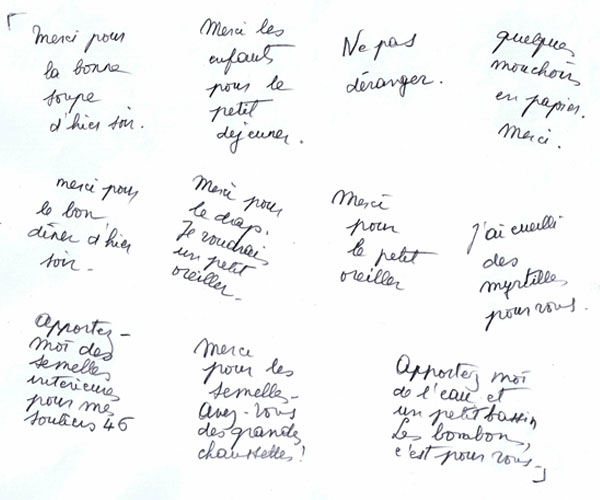 「
Merci pour
la bonne
soupe
d'hier soir.
Merci les
enfants
pour le
petit
déjeuner.
Ne pas
déranger.
quelques
mouchoirs
en papier.
Merci.
merci pour
le bon
dîner d'hier
soir -
Merci pour
le drap.
Je voudrais
un petit
oreiller -
Merci
pour
le petit
oreiller
J'ai cueilli
des
myrtilles
pour vous.
Apportez -
moi des
semelles
intérieures
pour mes
souliers 46
Merci
pour les
semelles -
Avez-vous
des grandes
chaussettes !
Apportez moi
de l'eau et
un petit bassin
Les bonbons,
c'est pour vous -
」